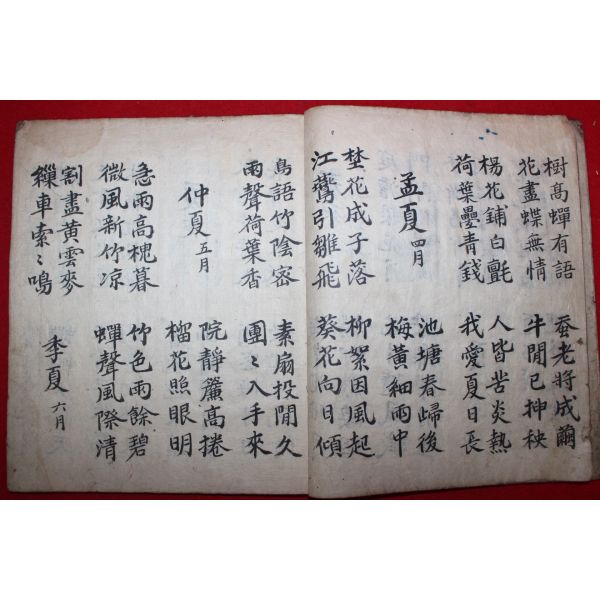 樹高蟬有語
花盡蝶無情
楊花鋪白氈
荷葉疊青錢
孟夏 四月
埜花成子落
江鷰引雛飛
蚕老將成繭
牛閒已揷秧
人皆苦炎熱
我愛夏日長
池塘春歸後
梅黃細雨中
柳絮因風起
葵花向日傾
鳥語竹陰密
雨聲荷葉香
仲夏 五月
急雨高槐暮
微風新竹凉
割盡黃雲麥
繅車索〻鳴
素扇投閒久
團〻入手來
院靜簾高捲
榴花照眼明
竹色雨餘碧
蟬聲風際清
季夏 六月